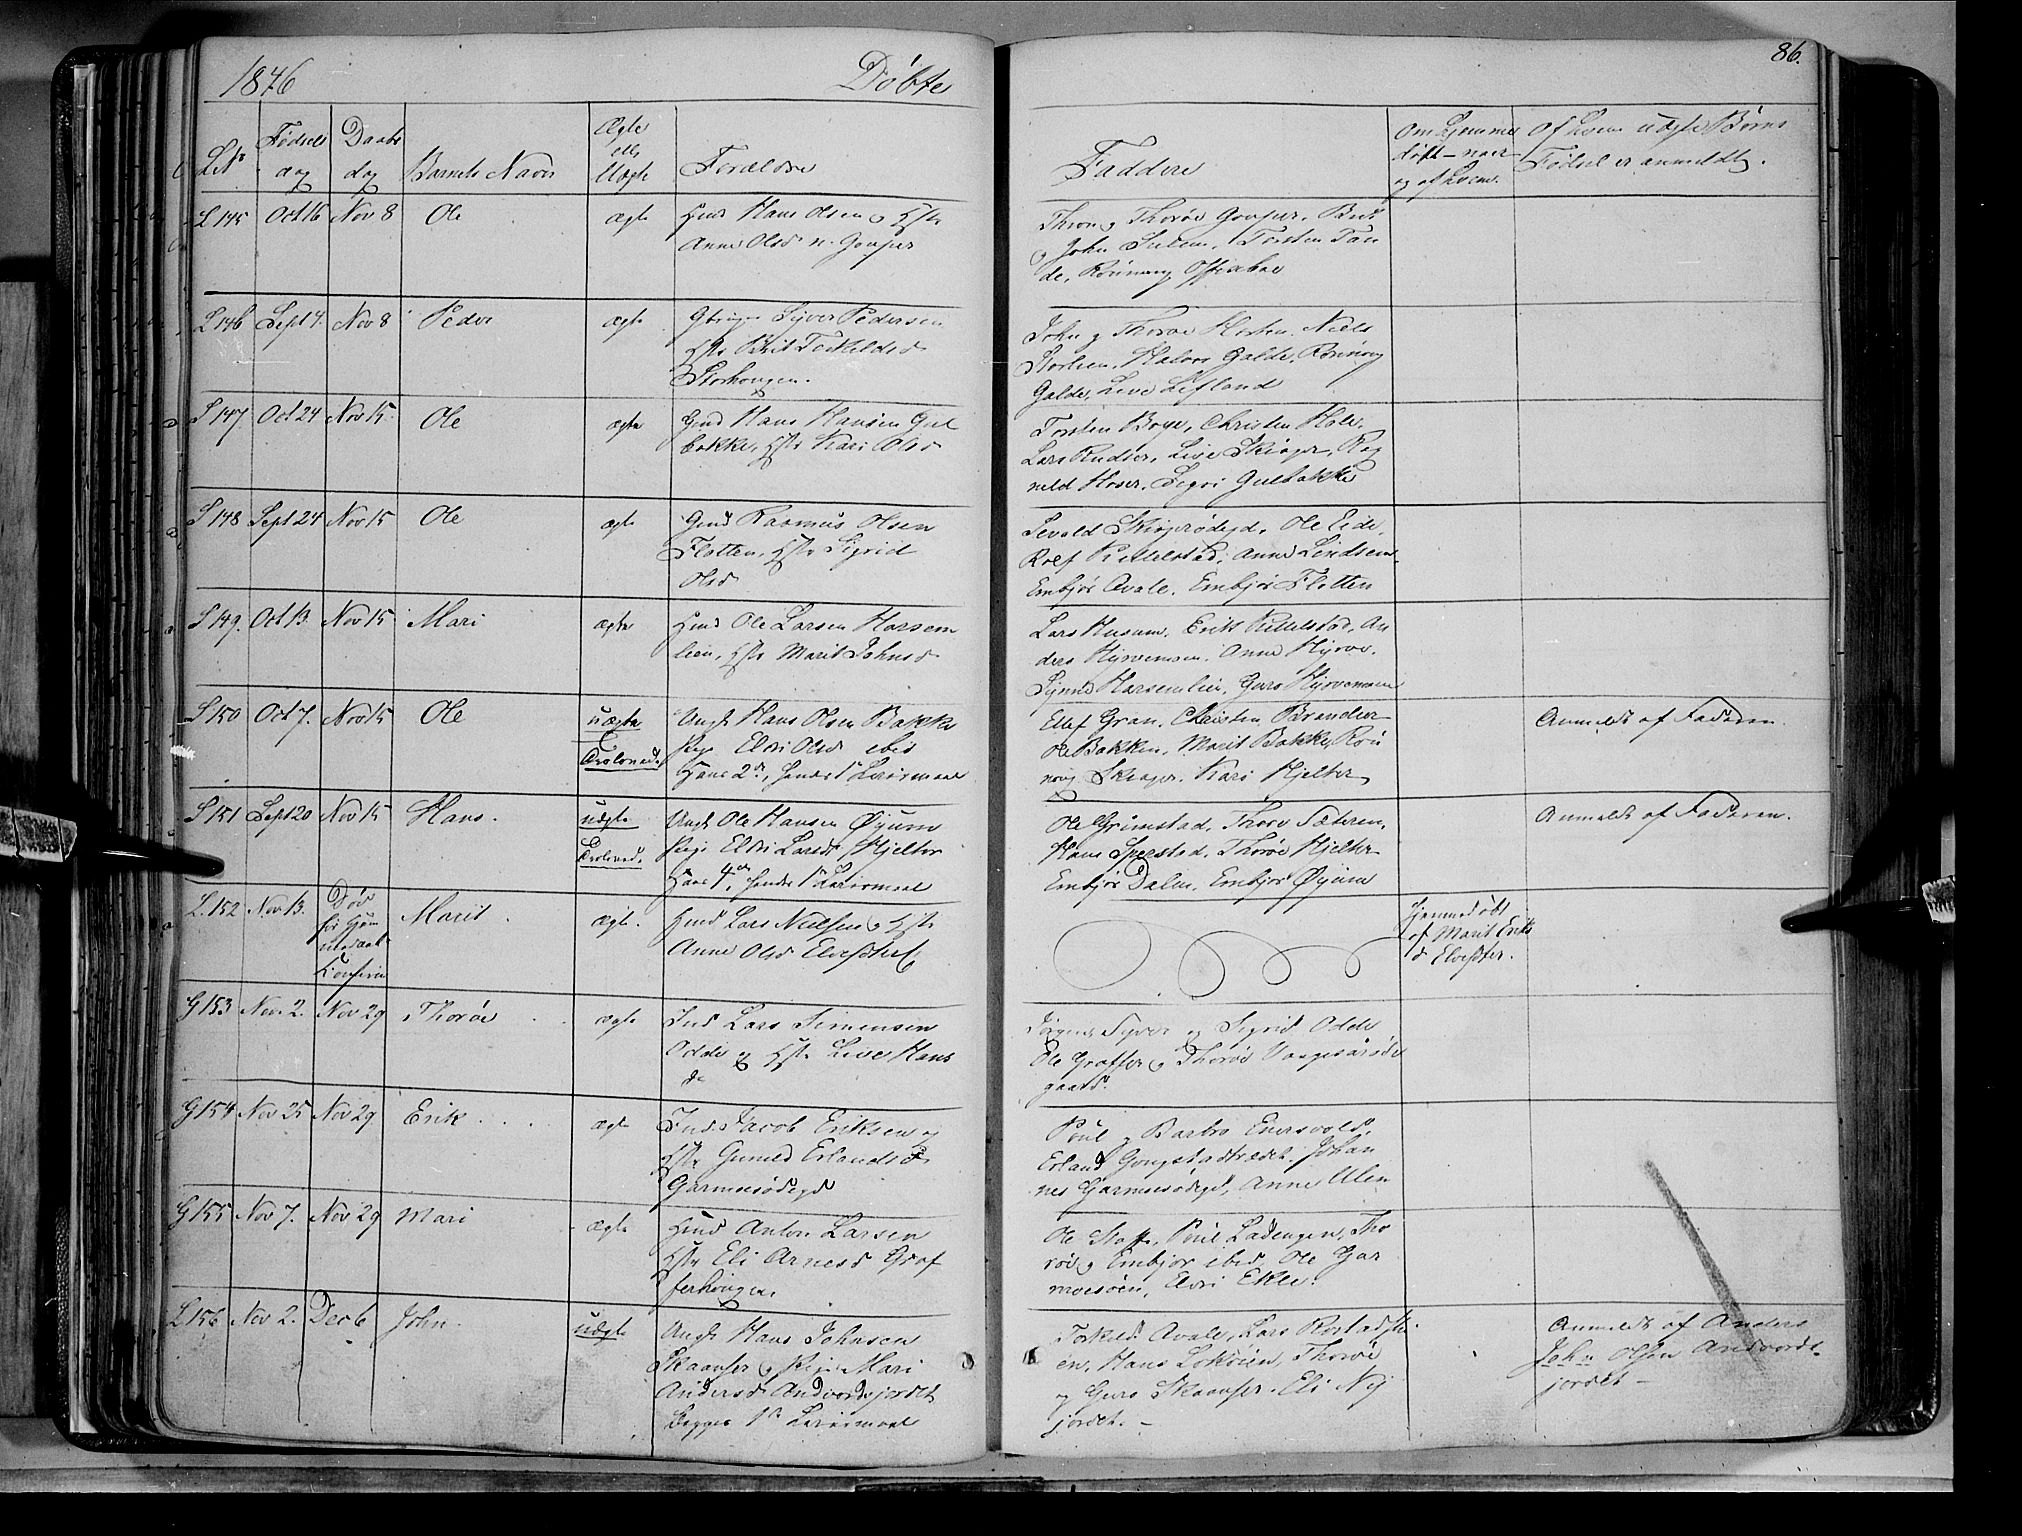 1846
Døbte
86.
Lit
Fødsels dag
Daabs dag
Barnets Navn
Ægte elle Uægte
Forældre
Faddere
Om hjemmedøbt – naar og af hvem.
Af hvem uægte Børns Fødsel er anmeldt.
L 145 Oct 16 Nov 8 Ole ægte
Hans Olsen og Hstr
Anne Olsd n. Gonper
Thron og Thorøe Gonper, Brit
og John Sulem, Torsten Tan
de, Rønnaug Offerboe
L 146 Sept 4. Nov 8 Peder ægte
Syver Pedersen
Hstr Brit Torkeldsd
Storhougen.
John og Thorøe Horten, Niels
Storlien, Halvor Galde, Rønnaug
Galde, Live Lifland
S 147. Oct 24 Nov 15. Ole ægte
Gmd Hans Hansen Gul
bakke, Hstr Kari Olsd
Torsten Boye, Christen Hole,
Lars Rudser, Live Skiager, Rag
nild Hoser, Segri Gulbakke
S 148 Sept 24 Nov 15 Ole ægte
Gmd Rasmus Olsen
Flotten, Hstr Sigrid
Olsd
Sevald Skiagrødegd, Ole Eide,
Rolf Kettelstad, Anne Lindsem,
Embjør Avale, Embjør Flotten
S 149. Oct 13. Nov 15 Mari ægte
Hmd Ole Larsen Harsem
lien, Hstr Marit Johnsd
Lars Husum, Erik Kettelstad, An
ders Hyrvemoen, Anne Hyrve,
Synne Harsemlien, Guro Hyrvemoen
S 150 Oct 7. Nov 15 Ole uægte Trolovede
Ungk Hans Olsen Bakke
Pige Eldri Olsd ibid
Hans 2de, hendes 1ste Leiermaal
Ellef Gran, Christen Brandser
Ole Bakken, Marit Bakke, Røn
naug Skiager, Kari Hjelter
Anmeldt af Faderen.
S 151 Sept 20 Nov 15 Hans. uægte Trolovede.
Ungk Ole Hansen Øyum
Pige Eldri Larsd Hjelter
Hans 4de, hendes 1ste Leiermaal
Ole Grimstad, Thore Sæteren,
Hans Sperstad, Thorøe Hjelter
Embjør Dalen, Embjør Øyum
Anmeldt af Faderen.
L. 152 Nov 13. Død før Hjemmedaabs Konfirm Marit. ægte.
Hmd Lars Nielsen og Hstr
Anne Olsd Elvesæter
Hjemmedøbt
af Marit Eriks
d Elvesæter.
G 153 Nov. 2. Nov 29 Thorøe ægte
Ind Lars Simensen
Odde og Hstr Live Hans
d
Jøgen, Syver og Sigrid Odde
Ole Graffer og Thorøe Vaagesærøde
gaard.
G 154 Nov 25 Nov 29 Erik. ægte
Ind Jacob Eriksen og
Hstr Gunild Erlandsd
Garmosødegd
Poul og Barbro Enersvold,
Erland Gongstadtrædet, Johan
nes Garmosødegd, Anne Ulen
G 155 Nov 7. Nov 29 Mari ægte
Hmd Anton Larsen
Hstr Eli Arnesd Graf
ferhougen.
Ole Staff, Poul Ladengen, Tho
røe og Embjør ibid, Ole Gar
moesøen, Eldri Ekle.
L 156 Nov 2. Dec 6 John. uægte
Ungk Hans Johnsen
Skaanser og Pige Mari
Andersd Andvordsjordet
Begges 1ste Leiermaal
Tokeld Avale, Lars Rostadstu
en, Hans Lokøien, Thorøe
og Guro Skaanser, Eli Nij
jordet. –
Anmeldt af Anders
John Olsen Andvords
jordet –